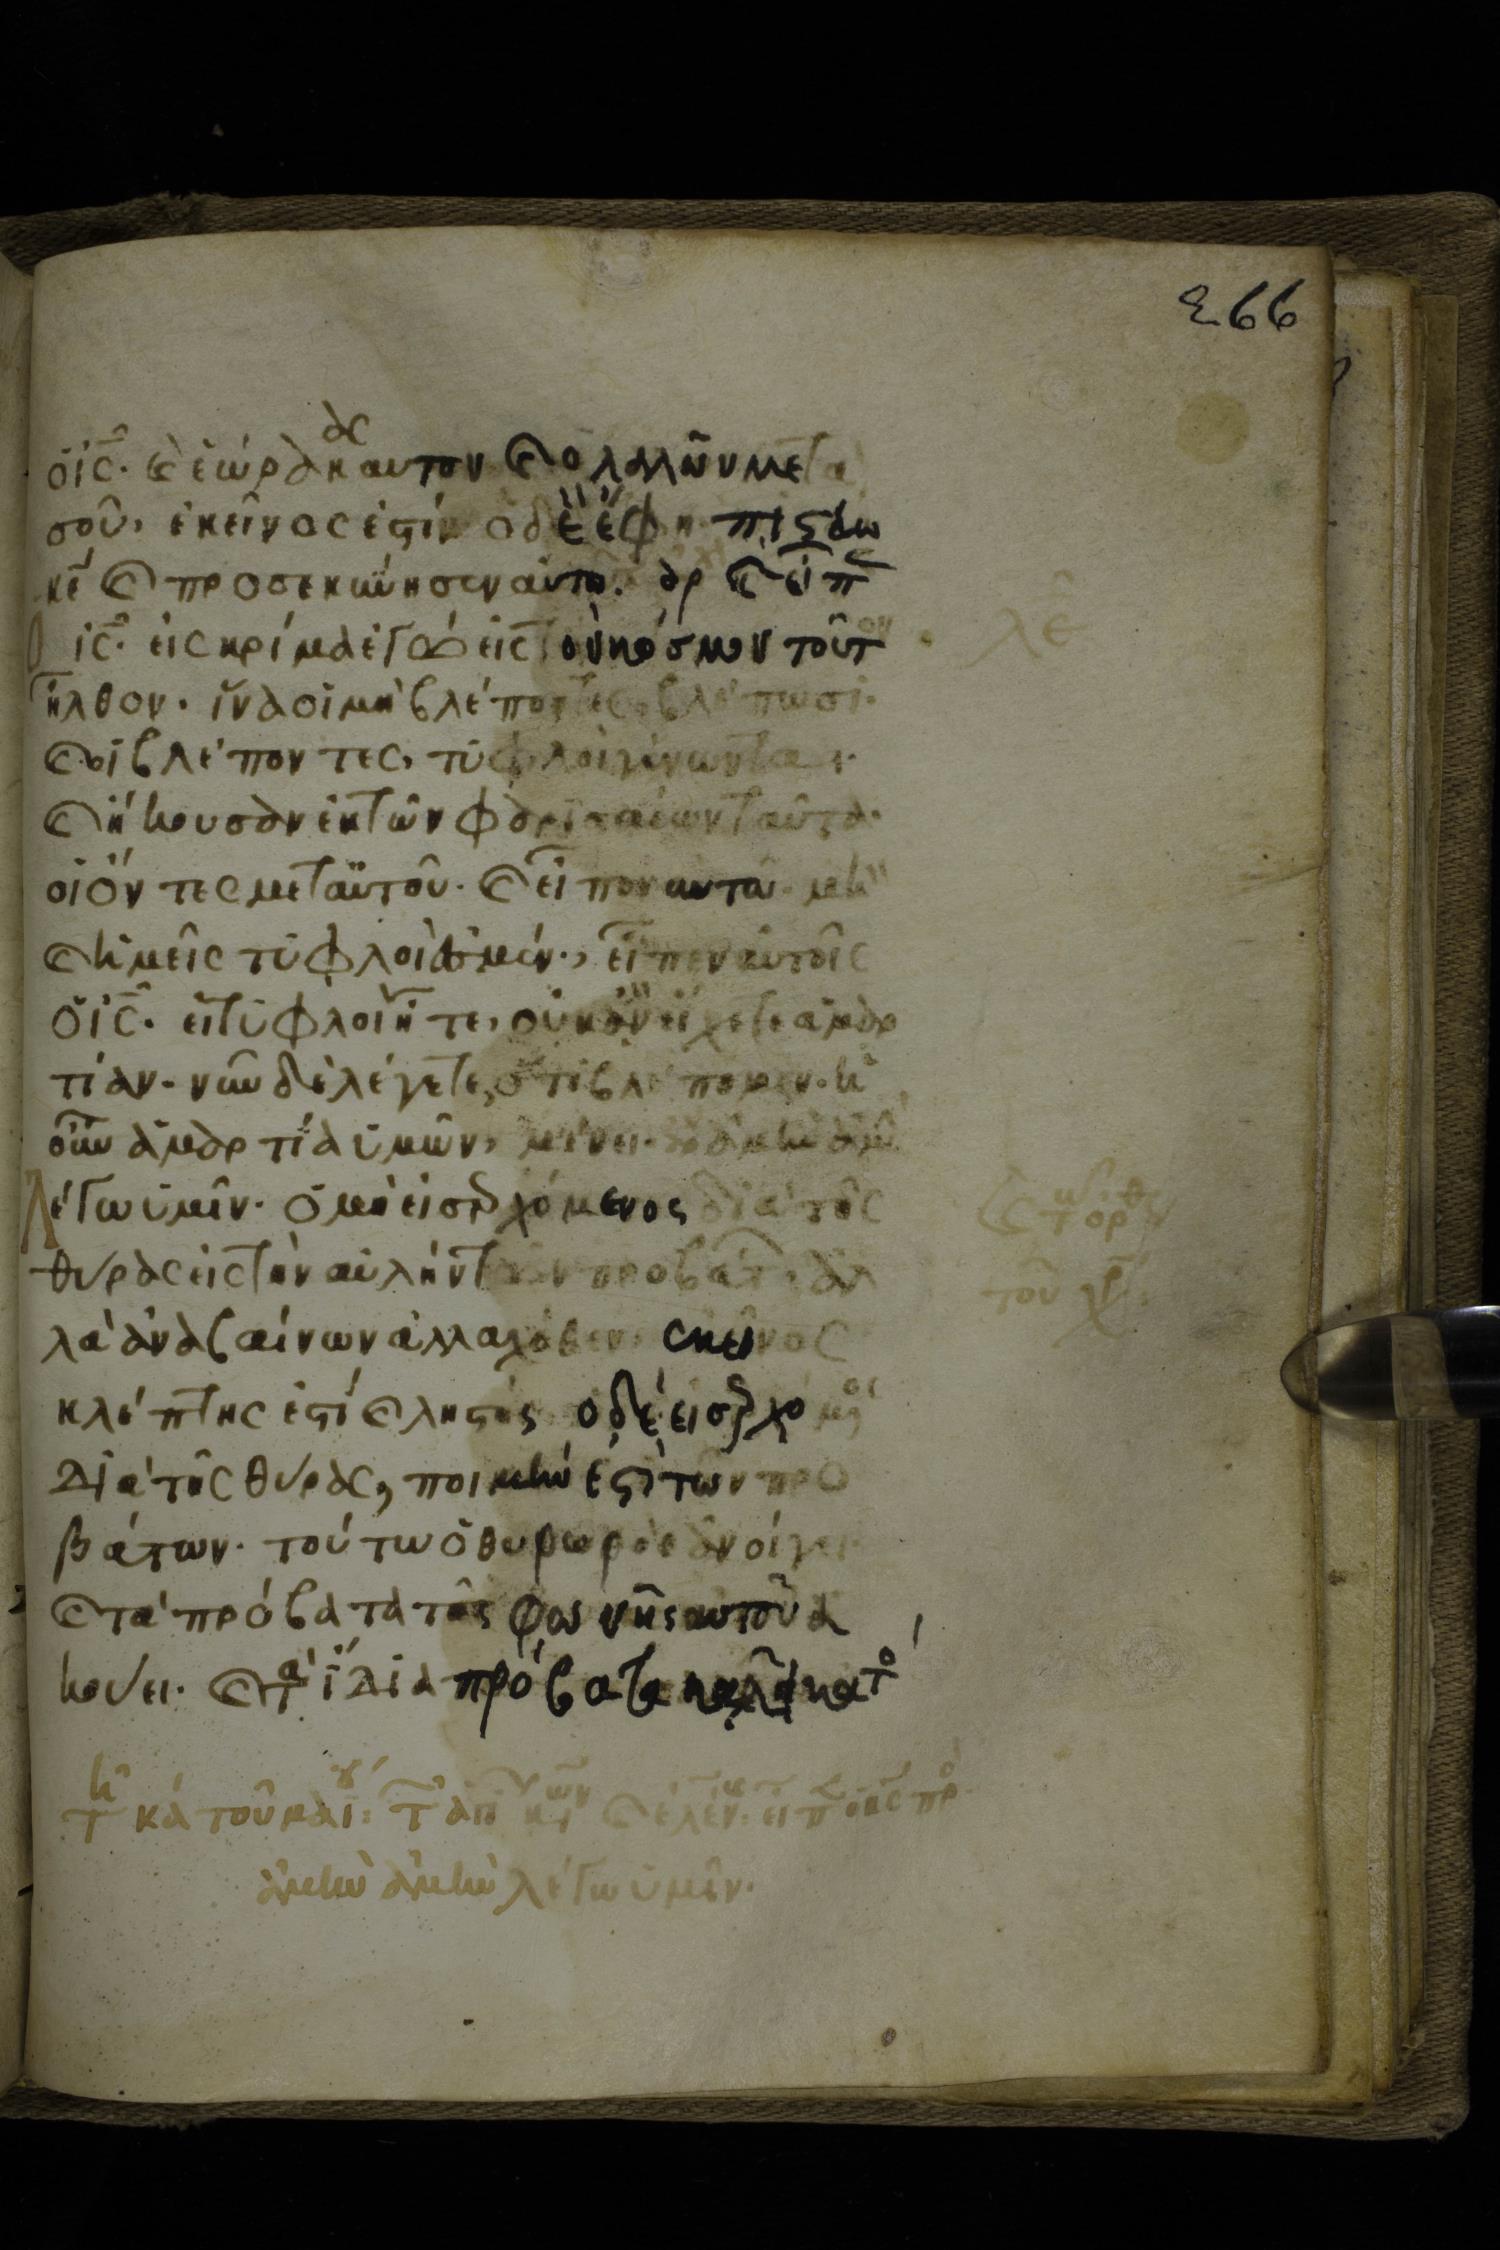 266
ὁ ἰς̄· ϗ ἑώρακας αὐτὸν ϗ ὁ λαλῶν μετὰ
σοῦ, ἐκεῖνος ἐστίν ὁ δὲ ἔφη πιστεύω
κε̄ ϗ προσεκύνησεν αὐτῶ. ἀρ ϗ εἶπ
ὁ ἰς̄· εἰς κρίμα ἐγὼ εἰς τὸν κόσμον τοῦτον
ἦλθον· ἵνα οἱ μὴ βλέποντες βλέπωσι·
ϗ οἱ βλέποντες, τυφλοὶ γένωνται·
ϗ ἤκουσαν ἐκ τῶν φαρισαίων ταῦτα·
οἱ ὄντες μετ αὐτοῦ· ϗ εἶπον αὐτῶ· μὴ
ϗ ἡμεῖς τυφλοί ἐσμεν·, εἶπεν αὐτοῖς
ὁ ἰς̄· εἰ τυφλοὶ ἦτε, οὐκ ἂν εἴχετε ἁμαρ
τίαν· νῦν δὲ λέγετε, ὅτι βλέπομεν· ἡ
οὖν ἁμαρτία ὑμῶν, μένει· ἀμὴν ἀμὴν
λέγω ὑμῖν· ὁ μὴ εἰσερχόμενος διὰ τῆς
θύρας εἰς τὴν αὐλὴν τῶν προβάτ, ἀλ
λὰ ἀναβαίνων ἀλλαχόθεν, ἐκεῖνος
κλέπτης ἐστί ϗ ληστής ὁ δὲ εἰσερχόμενος
διὰ τῆς θύρας, ποιμήν ἐστι τῶν προ
βάτων· τούτω ὁ θυρωρὸς ἀνοίγει
ϗ τὰ πρόβατα τῆς φωνῆς αὐτοῦ ἀ
κούει· ϗ τὰ ἴδια πρόβατα καλεῖ κατ
λε
τοῦ χρ
τῆ κα τοῦ μαΐου ϗ ἑλέν· εἶπ ὁ κς πρ
ἀμὴν ἀμὴν λέγω ὑμῖν·